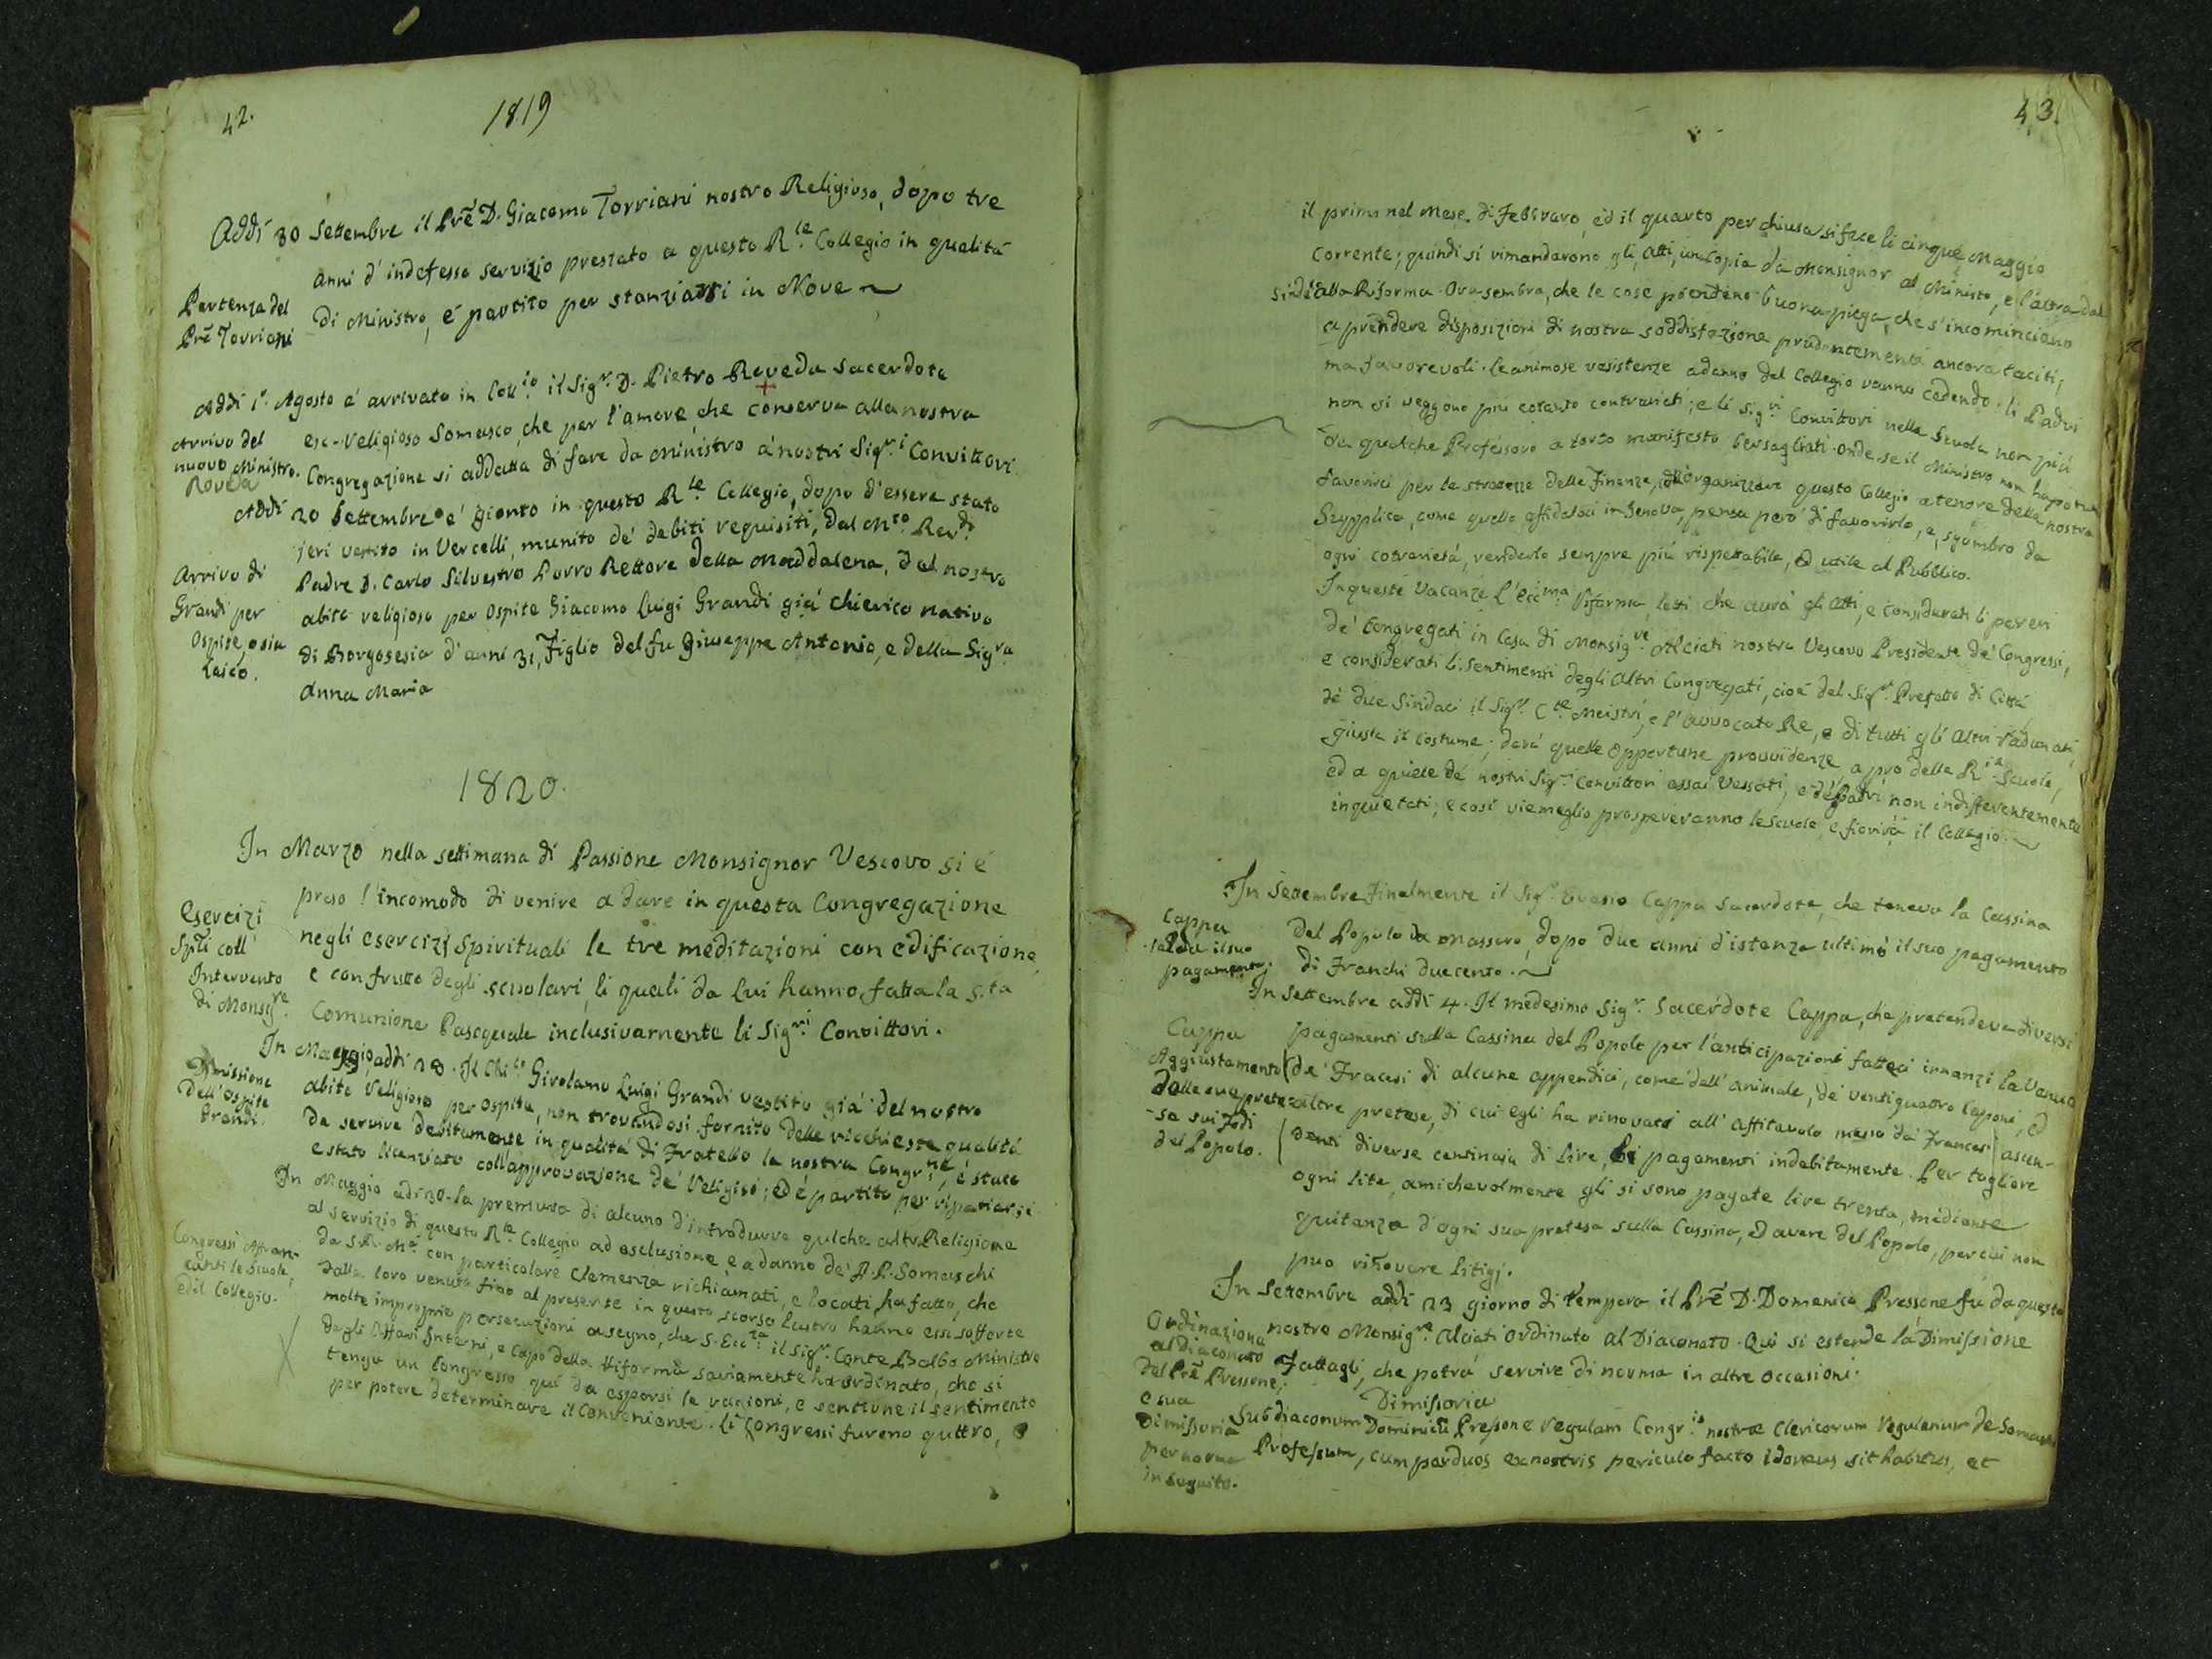 42.
1819
Addì 30 Settembre il Prẽ D. Giacomo Torriani nostro Religioso, dopo tre
anni d'indefesso servizio prestato a questo R.le Collegio in qualità
Partenza del
Prẽ Torriani
di Ministro, è partito per stanziarsi in Nove
Addì 1.° Agosto é arrivato in Coll.io il Sig.r D. Pietro Roveda Sacerdote
Arrivo del
nuovo Ministro.
Roveda
ex-religioso Somasco, che per l'amore, che conserva alla nostra
Congregazione si addatta di fare da Ministro a' nostri Sig.ri Convittori
Addì 20 Settembre é gionto in questo R.le Collegio, dopo d'essere stato
jeri vestito in Vercelli, munito de' debiti requisiti, dal M.to Rev.do
Arrivo di
Grandi per
Ospite, osia
Laico.
Padre D. Carlo Silvestro Porro Rettore della Maddalena, del nostro
abito religioso per Ospite Giacomo Luigi Grandi già chierico nativo
di Borgosesia d'anni 31, Figlio del fu Giuseppe Antonio, e della Sig.ra
Anna Maria
1820.
In Marzo nella settimana di Passione Monsignor Vescovo si é
preso l'incomodo di venire a dare in questa Congregazione
Esercizi
Sp̃li coll'
Intervento
di Monsig.re
negli esercizj Spirituali le tre meditazioni con edificazione,
e con frutto degli scuolari, li quali da Lui hanno fatta la S.ta
Comunione Pascquale inclusivamente li Sig.ri Convittori.
In Maggio addì 28. Il Chi.co Girolamo Luigi Grandi vestito già del nostro
Dimissione
dell'Ospite
Grandi.
abito Religioso per ospite, non trovandosi fornito delle ricchieste qualità
da servire debitamente in qualità di Fratello la nostra Congr.ne, é stato
e stato licenziato coll'approvazione de' Religiosi; ed é partito per ripatriarsi
In Maggio adi 30. la premura di alcuno d'introdurre qulche altra Religione
al servizio di questo R.le Collegio ad esclusione e a danno de' P.P. Somaschi
Congressi
le Scuole,
ed il Collegio.
da S.R.M.à con particolare Clemenza richiamati, e locati, ha fatto, che
dalla loro venuta fino al presente in questo scorso Lustro hanno essi sofferte
molte improprie persecuzioni a segno, che S. Ecc.za il Sig.r Conte Balbo Ministro
degli Affari Interni, e Capo della Riforma saviamente ha ordinato, che si
tenga un Congresso qui da esporsi le ragioni, e sentirne il sentimento
per potere determinare il Conveniente. Li Congressi furono quttro,
43.
il primo nel Mese di Febbraro, ed il quarto per chiusa si fece li cinque Maggio
Corrente; quindi si rimandarono gli Atti, una Copia da Monsignor al Ministo, e l'altra dal
Sind.o alla Riforma. Ora sembra, che le cose prendano buona piega, che s'incominciano
a prendere disposizioni di nostra soddisfazione prudentemente ancora taciti,
ma favorevoli. Le animose resistenze a danno del Collegio vanno cedendo: li Padri
non si veggono più cotanto contrariati; e li Sig.ri Convittori nella Scuola non più
da qualche Professore a torto manifesto bersagliati. Onde, se il Ministro non ha potuto
favorirci per le strettezze delle Finanze, di organizzare questo Collegio a tenore della nostra
Supplica, come quello affidatoci in Genova, pensa però di favorirlo, e, sgombro da
ogni contrarietà, renderlo sempre più rispettabile, ed utile al Pubblico.
In queste Vacanze L'Ecc.ma Riforma, letti che avrà gli Atti, e considerati li pareri
de' Congregati in Casa di Monsig.re Alciati nostro Vescovo Presidente de' Congressi,
e considerati li Sentimenti degli Altri Congregati, cioè del Sig.r Prefetto di Città
de' due Sindaci il Sig.r C.te Meistri, e l'Avvocato Re, e di tutti gli Altri radunati,
giusta il Costume; darà quelle opportune provvidenze a pro delle R.ie Scuole,
ed a quiete de' nostri Sig.ri Convittori assai Vessati, e de' Padri non indifferentemente
inquietati; e così viemeglio prospereranno le Scuole, e fiorirà il Collegio.
In Settembre Finalmente il Sig.r Evasio Cappa Sacerdote, che teneva la Cassina
Cappa
salda il suo
pagamento.
del Popolo da Massaro, dopo due anni d'istanza ultimò il suo pagamento
di Franchi duecento.
In Settembre addì 4. Il medesimo Sig.r Sacerdote Cappa, che pretendeva diversi
Cappa
Aggiustamento
delle sue prete-
se sui Fondi
del Popolo.
pagamenti sulla Cassina del Popolo per l'anticipazioni fatteci innanzi la Venuta
de' Fracesi di alcune appendici, come dell'animale, de' ventiquattro Capponi, ed
altre pretese, di cui egli ha rinovati all'Affitavolo messo da' Francesi ascen-
denti diverse centinaja di Lire, pagamenti indebitamente. Per togliere
ogni lite, amichevolmente gli si sono pagate lire trenta, mediante
quitanza d'ogni sua pretesa sulla Cassina, ed avere del Popolo, per cui non
puo riñovare litigj.
In Setembre addì 23 giorno di tempora il Prẽ D. Domenico Pressone fu da questo
Ordinazione
al Diaconato
del Prẽ Pressone,
e sua
Dimissoria
per norma
in seguito.
nostro Monsig.re Alciati ordinato al Diaconato. Qui si estende la Dimissione
Fattagli, che potrà servire di norma in altre occasioni.
Dimissoria
Subdiaconum Dominicũ Pressone Regularem Congr.is nostræ Clericorum Regularium de Somascha
Professum, cum per duos ex nostris periculo facto idoneus sit habitus, et